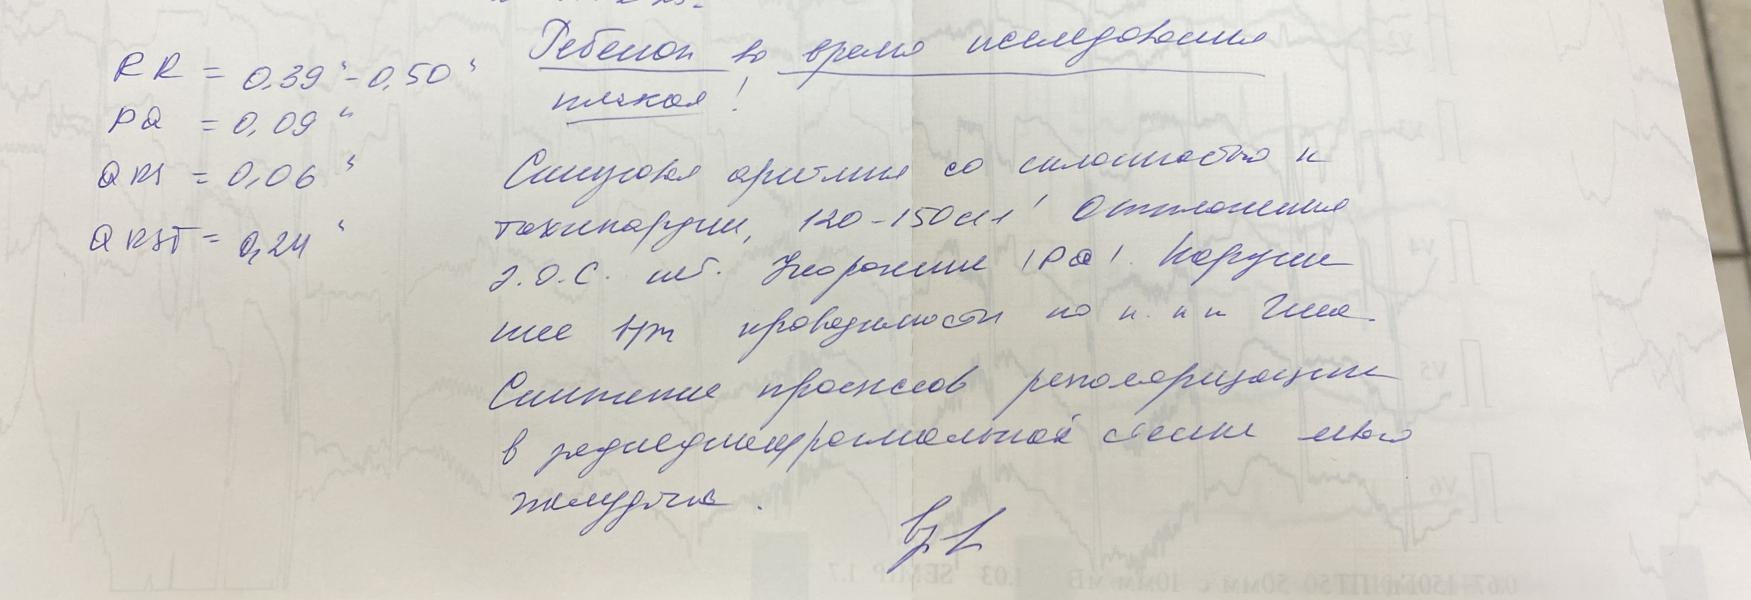 RR = 0,39"-0,50"
PQ = 0,09"
QRS = 0,06"
QRST = 0,24"
Ребенок во время исследования
плакал!
Синусовая аритмия со склонностью к
тахикардии, 120-150 в 1' Отклонение
Э.О.С. Укорочение PQ. Наруше
ние в/ж проводимости по п.н.п Гиса.
Снижение процессов реполяризации
в заднедиафрагмальной стенке левого
желудочка.
0.67-150Гц ПТ50 50мм/с 10мм/мВ 1.03 SEMIP 1.7
V4
V5
V6